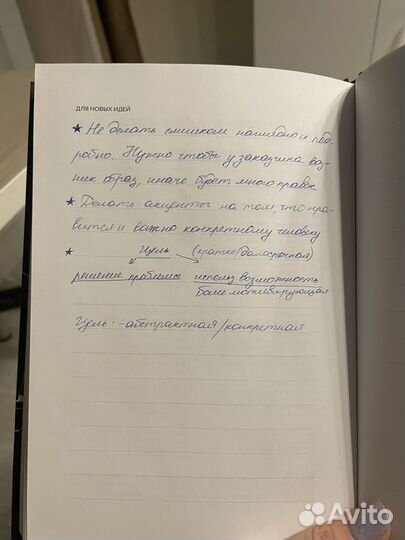 ДЛЯ НОВЫХ ИДЕЙ
★ Не делать слишком наглядно и под-
робно. Нужно чтобы у заказчика воз-
ник образ, иначе будет много правок
★ Делать акценты на том, что нра-
вится и важно конкретному человеку
★ Цель (кратко/долгосрочная)
решение проблемы использ возможность
более мотивирующая
Цель: -абстрактная/конкретная
Avito